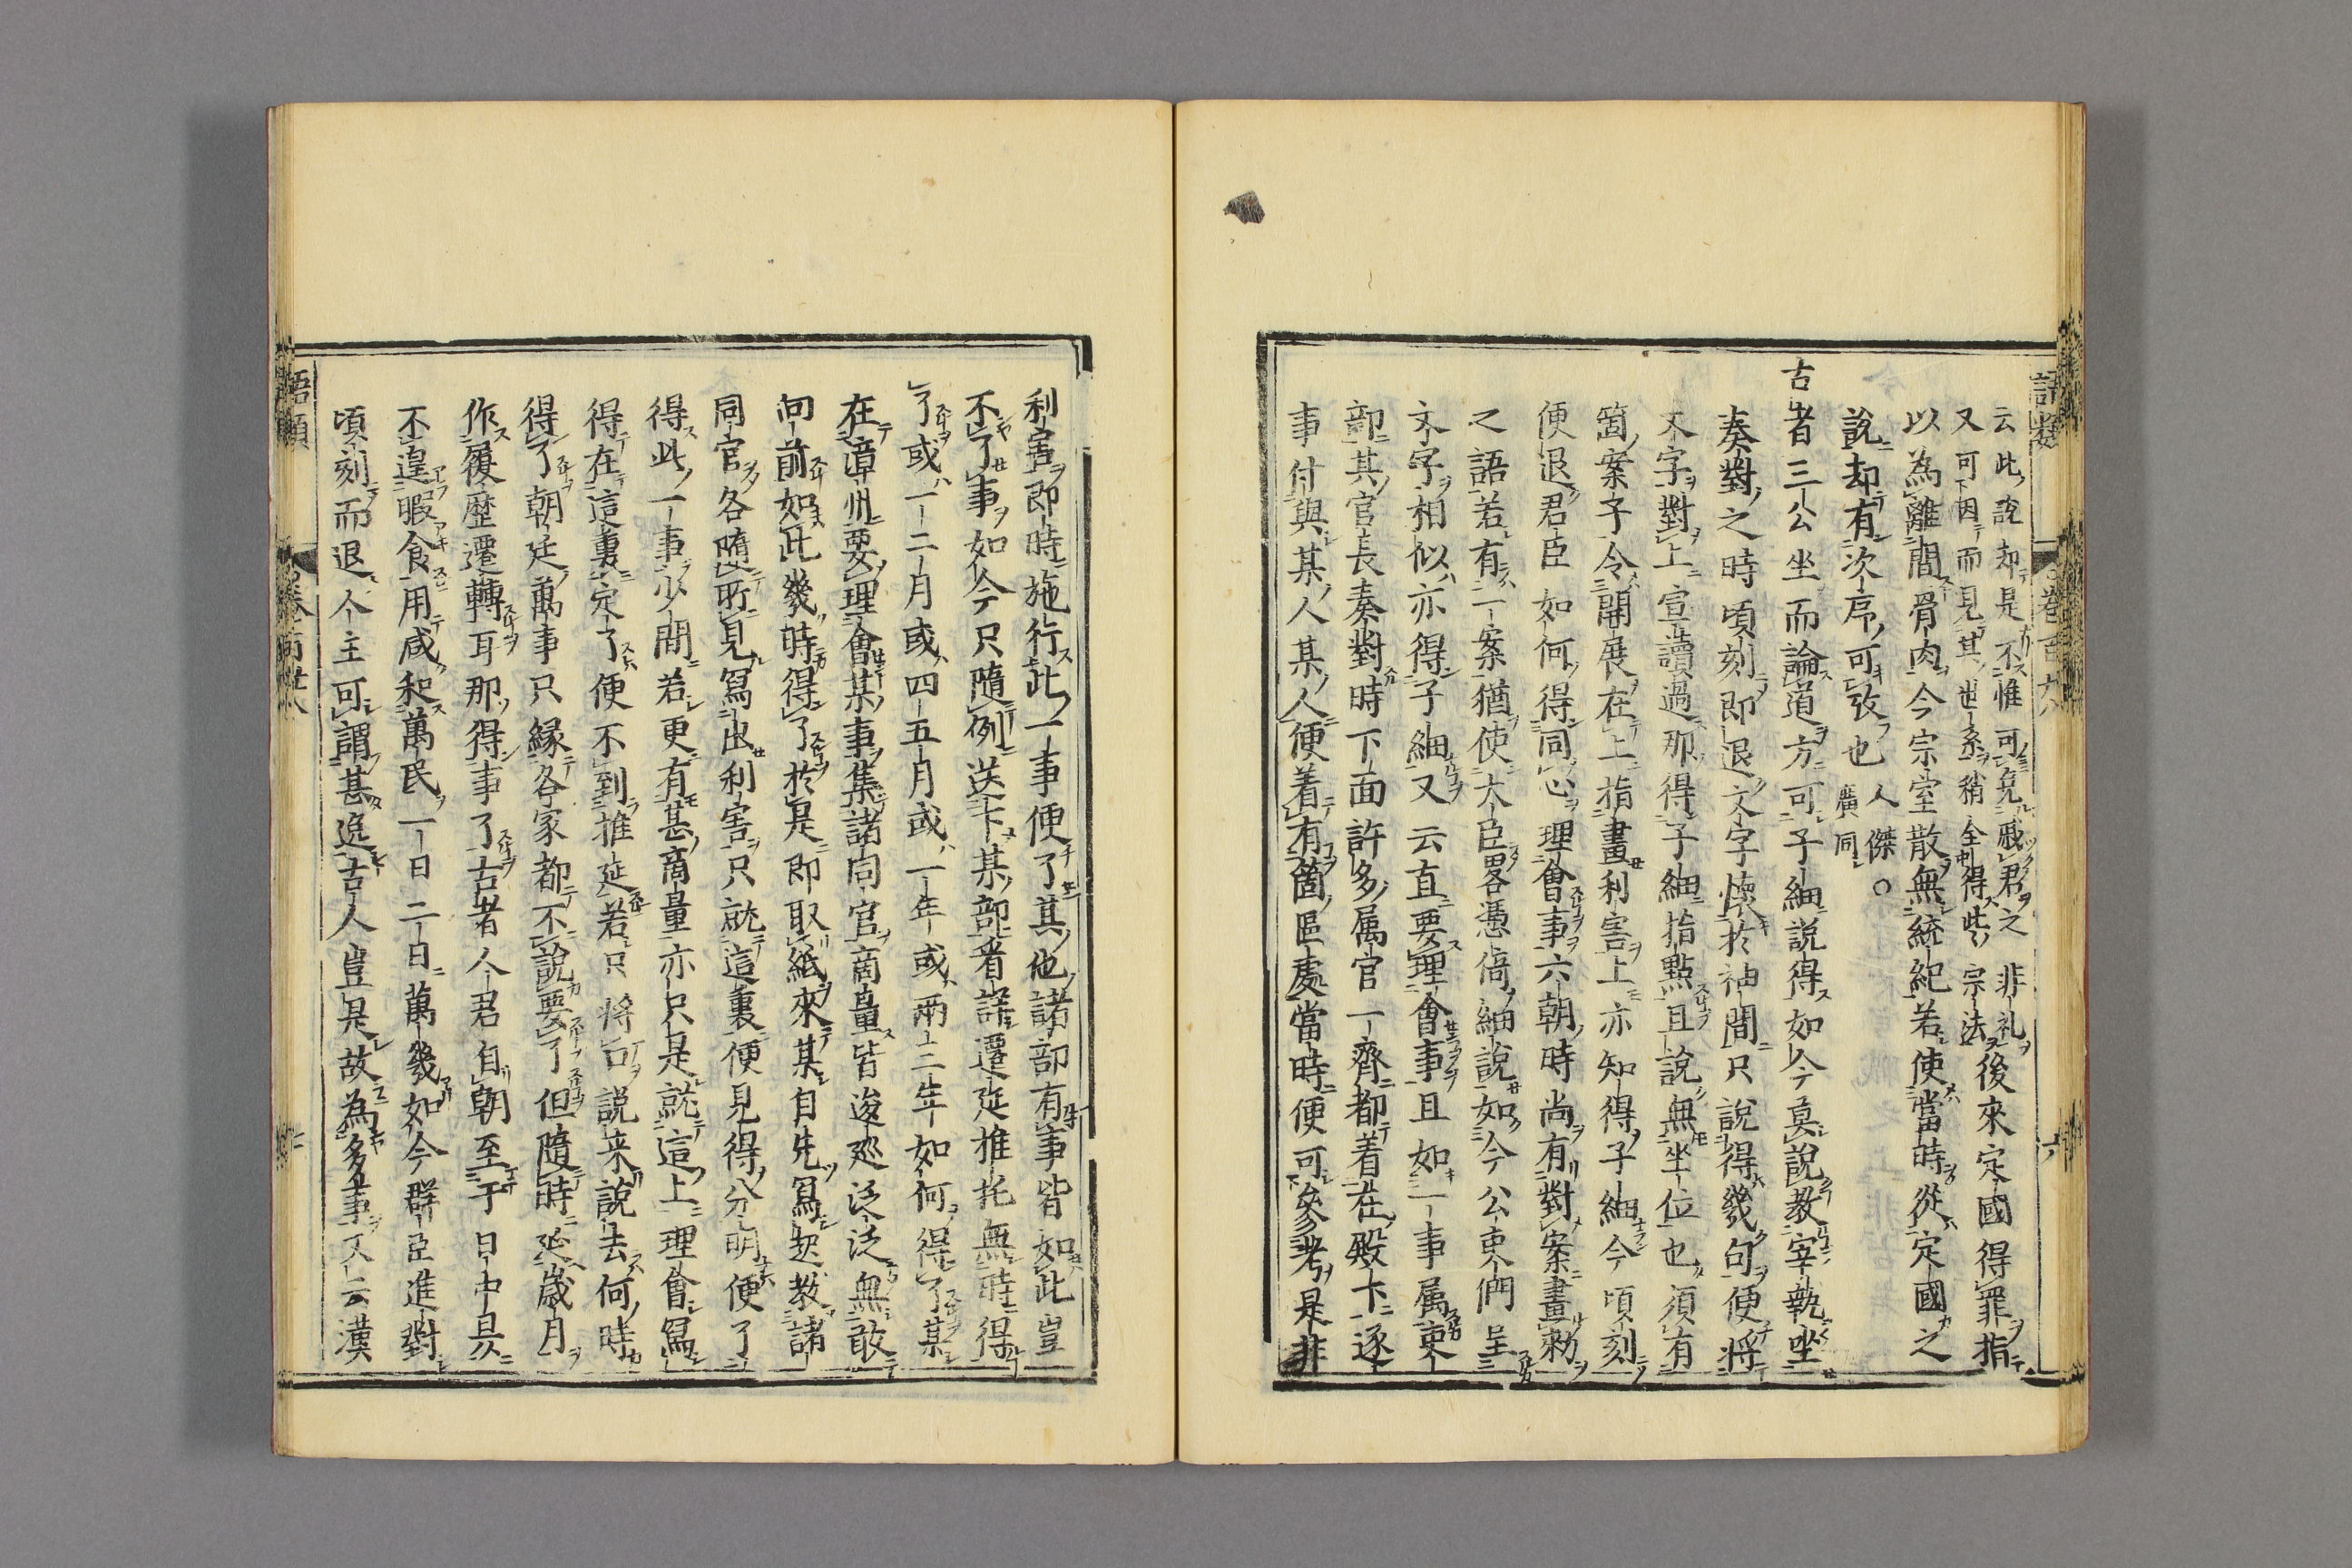 語類
卷百廿八
六
云此說却是不惟可免戚君之非礼
又可因而見其世系稍全得此宗法
後來定國得罪指
以為離間骨肉今宗室散無統紀若使當時從定國之
說却有次序可攷也
人傑○
廣同
古者三公坐而論道方可子細說得如今莫說教宰執坐
奏對之時頃刻即退文字懷於袖間只說得幾句便將
文字對上宣讀過那得子細指點且說無坐位也須有
箇案子令開展在上指畫利害上亦知得子細今頃刻
便退君臣如何得同心理會事六朝時尚有對案畫勑
之語若有一案猶使大臣畧憑倚細說如今公吏們呈
文字相似亦得子細又云直要理會事且如一事属吏
部其官長奏對時下面許多属官一齊都着在殿下逐
事付與某人某人便着有箇區處當時便可參考是非
利害即時施行此一事便了其他諸部有事皆如此豈
不了事如今只隨例送下某部看詳遷延推托無時得
了或一二月或四五月或一年或兩三年如何得了某
在漳州要理會某事集諸同官商量皆逡廵泛泛無敢
向前如此幾時得了於是即取紙來某自先寫起教諸
同官各隨所見寫出利害只就這裏便見得分明便了
得此一事少間若更有甚商量亦只是就這上理會寫
得在這裏定了便不到推延若只將口說来說去何時
得了朝廷萬事只緣各家都不說要了但隨時延歳月
作履歴遷轉耳那得事了古者人君自朝至于日中昃
不遑暇食用咸和萬民一日二日萬幾如今群臣進對
頃刻而退人主可謂甚逸古人豈是故為多事又云漢
語類
卷百廿八